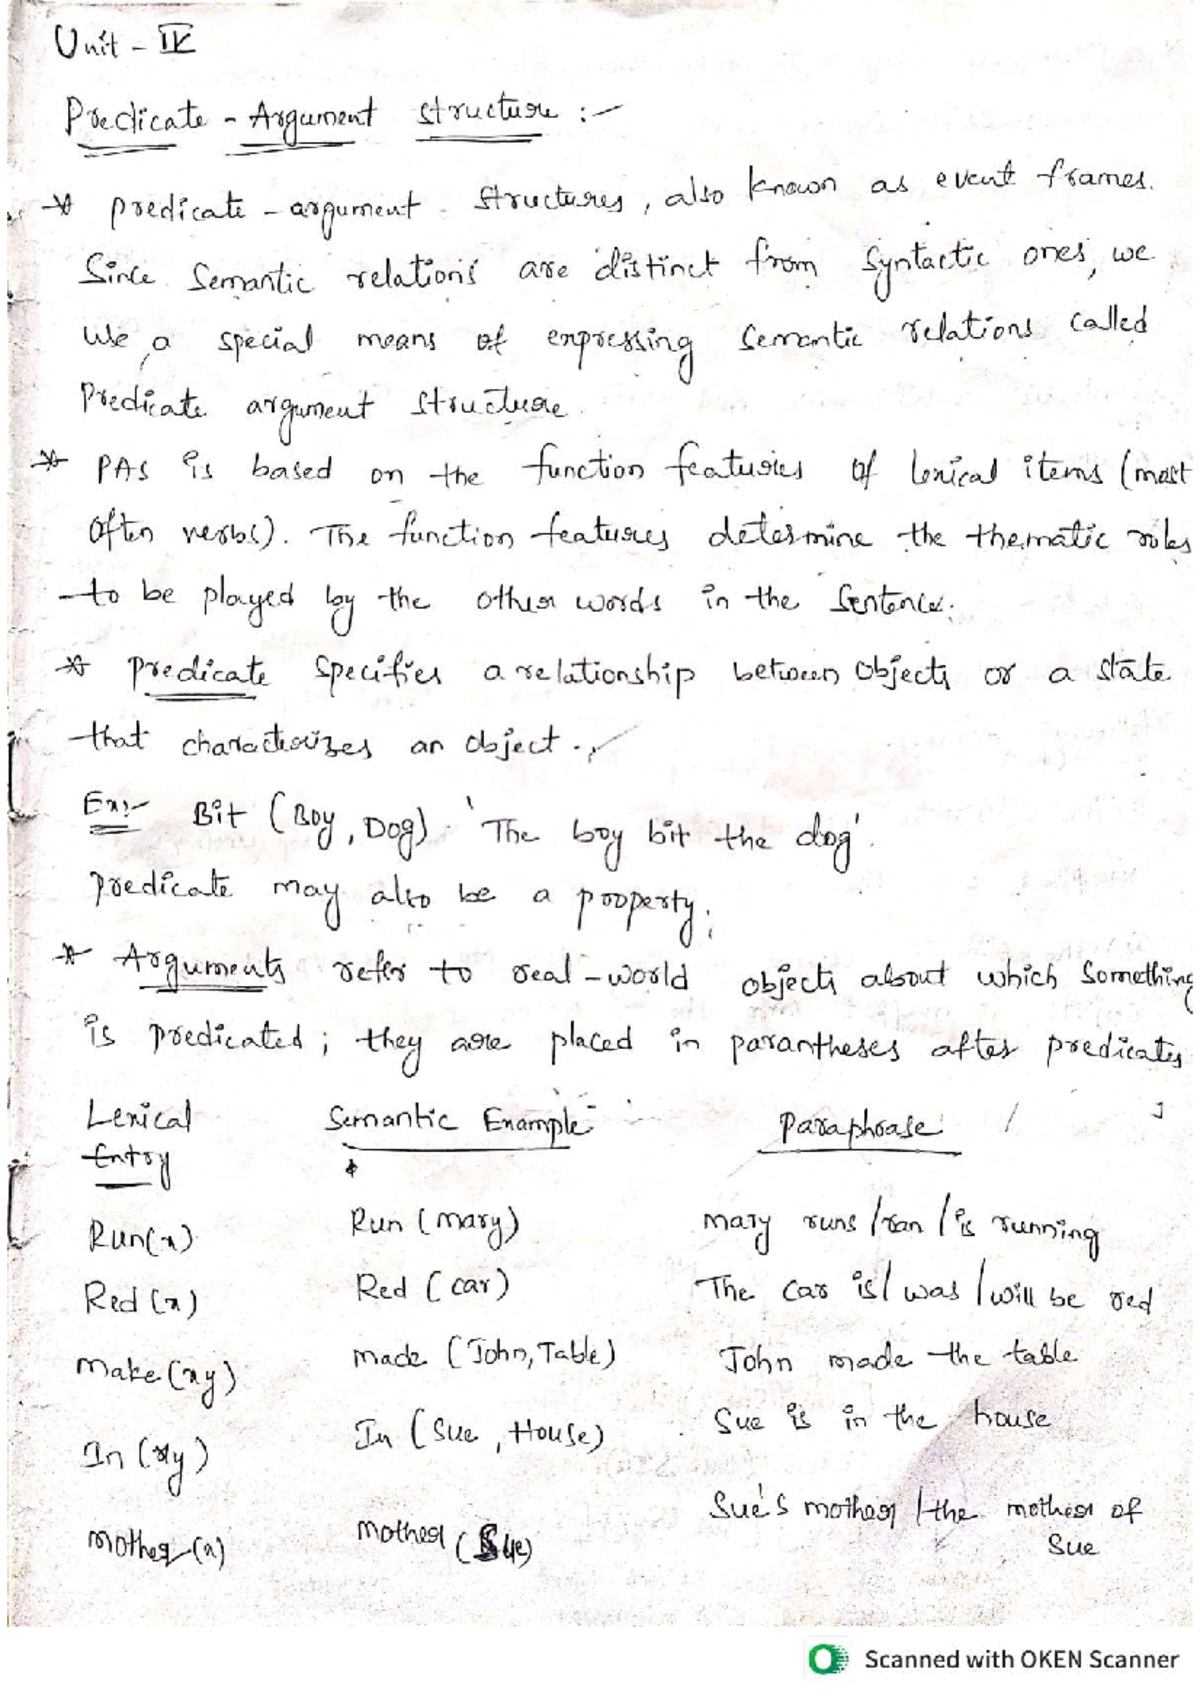 Unit - IV
Predicate - Argument structure :-
* predicate - argument structures, also known as event frames.
Since Semantic relations are distinct from Syntactic ones, we
use a special means of expressing Semantic relations called
Predicate argument structure.
* PAS is based on the function features of lexical items (most
often verbs). The function features determine the thematic roles
to be played by the other words in the Sentence.
* Predicate Specifies a relationship between Objects or a state
that characterizes an object.
Ex:- Bit (Boy, Dog) 'The boy bit the dog'.
predicate may also be a property;
* Arguments refer to real-world objects about which Something
is predicated; they are placed in parantheses after predicates
Lexical Entry Semantic Example Paraphrase
Run(x) Run (mary) mary runs/ran/is running
Red (x) Red (car) The car is/was/will be red
make(xy) made (John, Table) John made the table
In (xy) In (Sue, House) Sue is in the house
mother(x) mother (Sue) Sue's mother/the mother of Sue
Scanned with OKEN Scanner